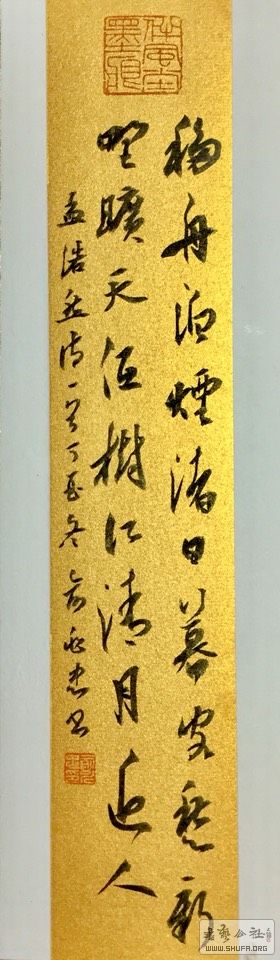 移舟泊煙渚日暮客愁新
野曠天低樹江清月近人
孟浩然诗一首丁冬忠书
WWW.SHUFA.ORG